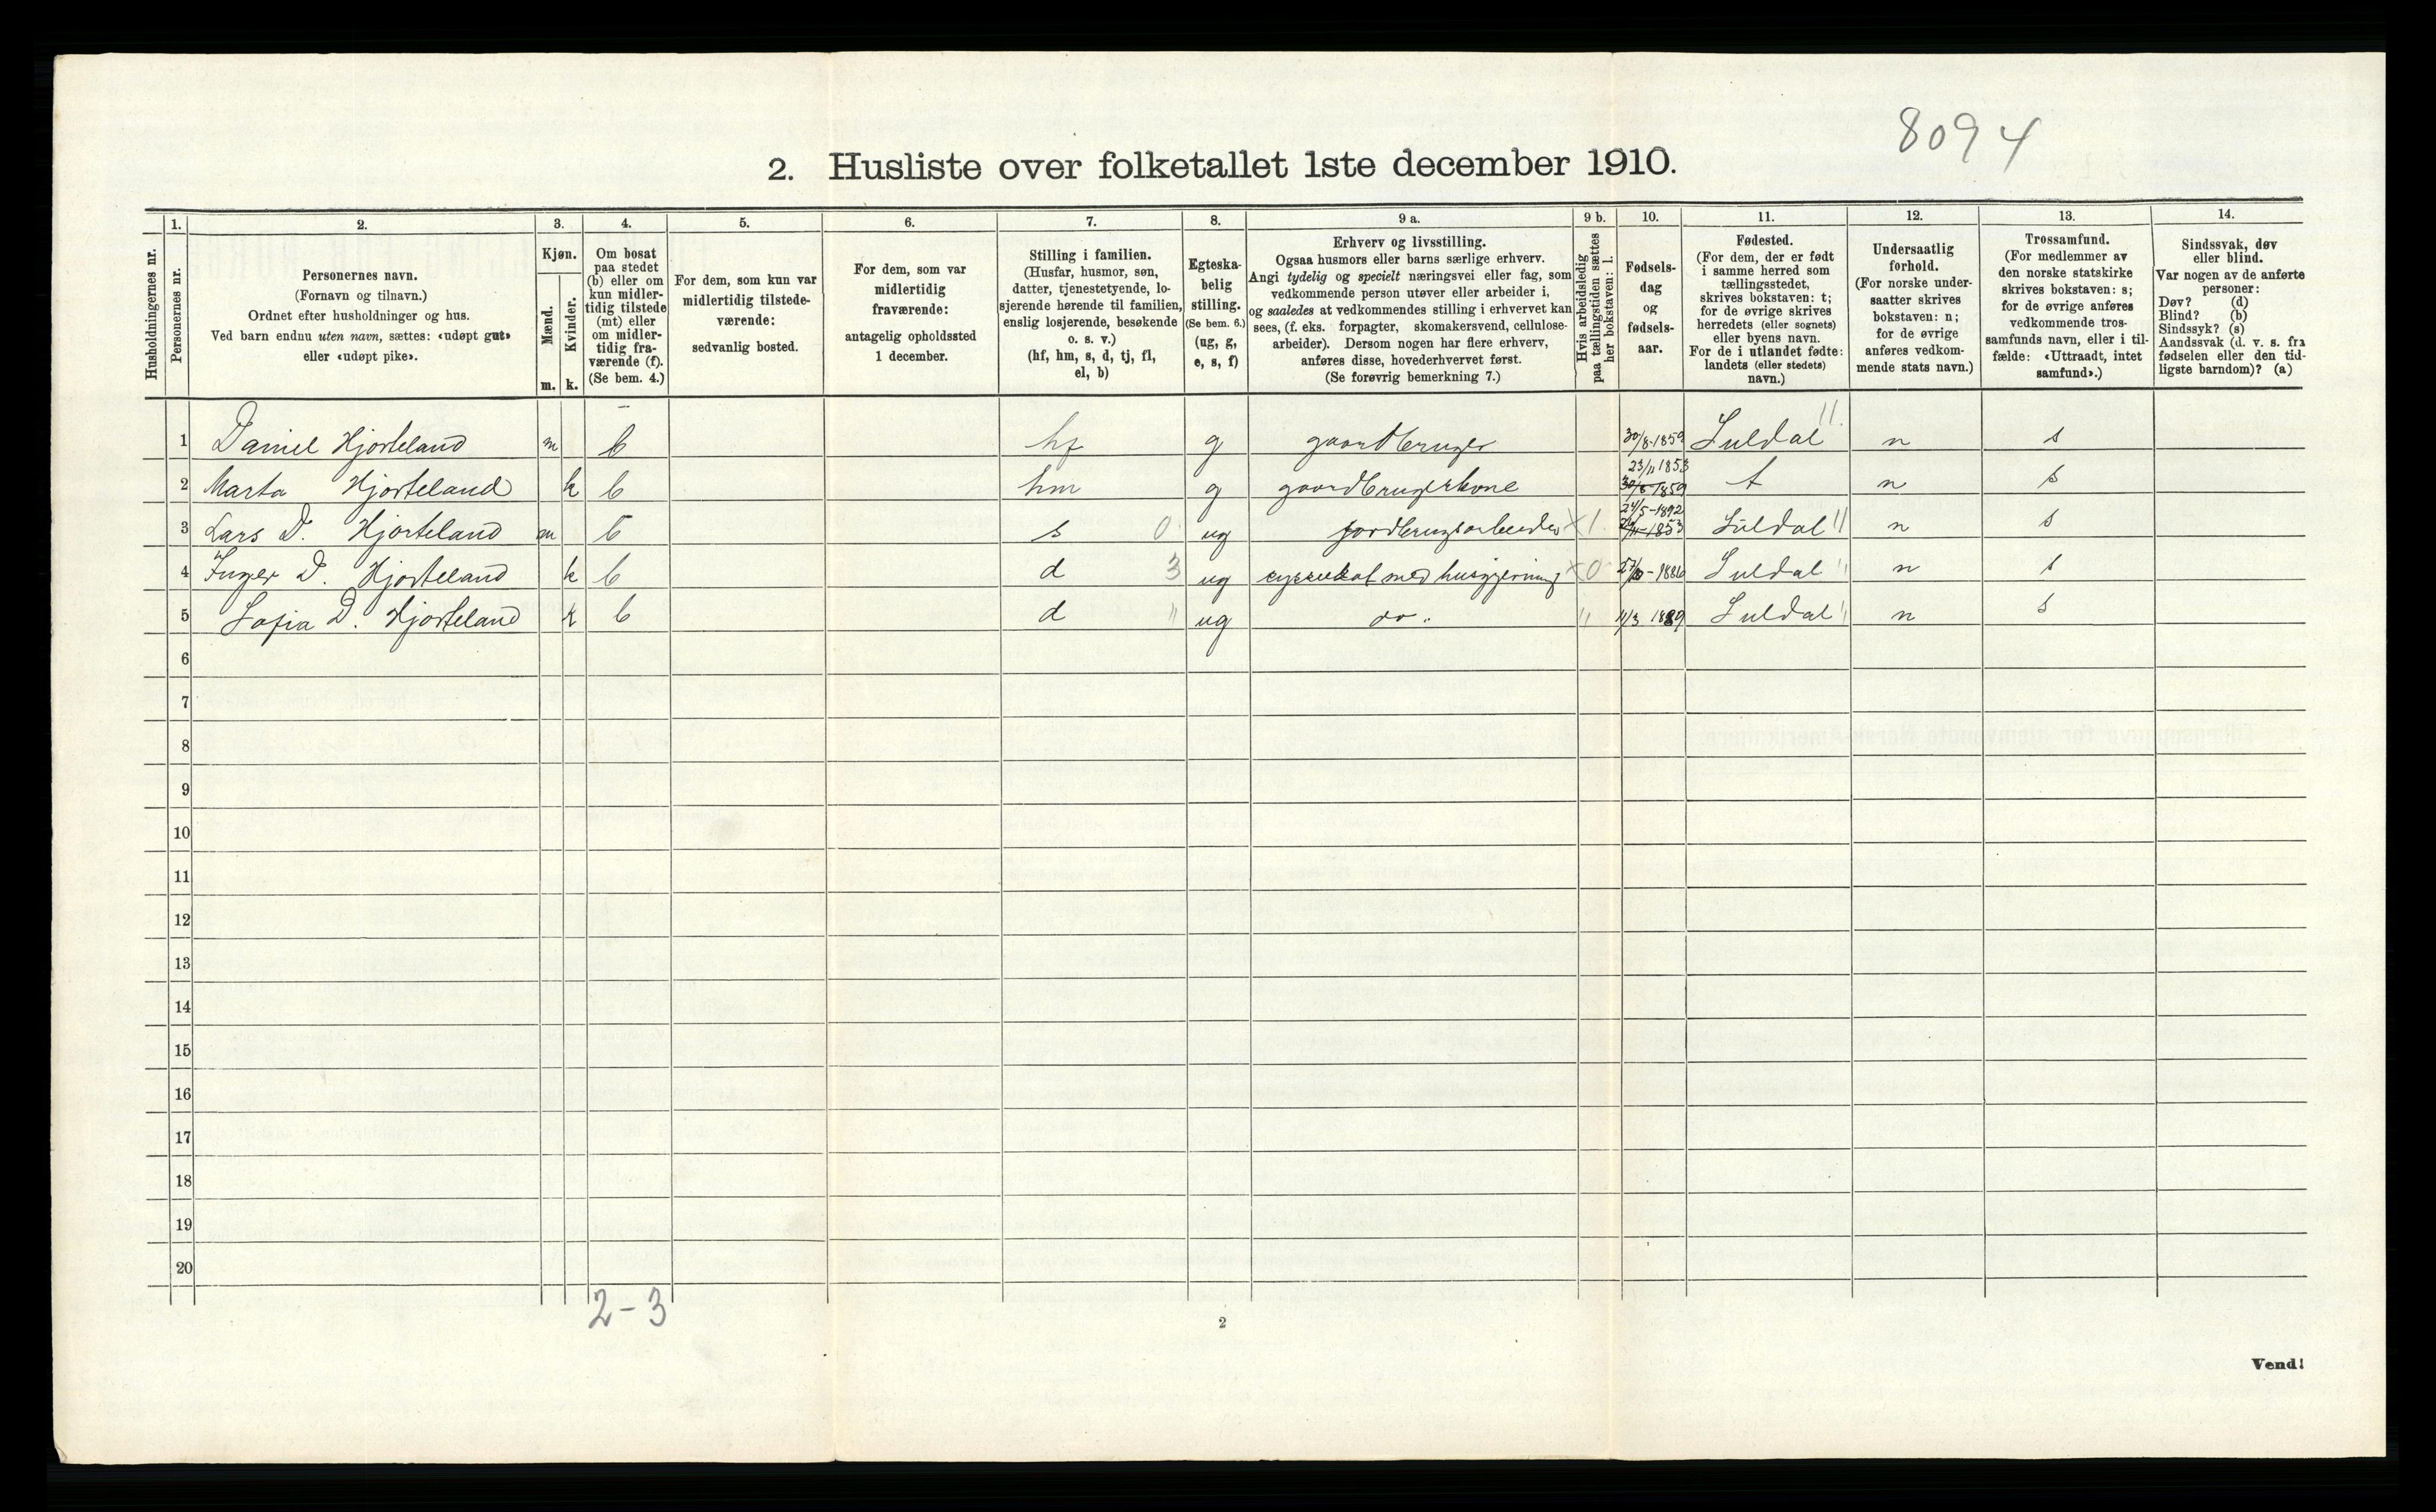 8094
2. Husliste over folketallet 1ste december 1910.
Husholdningernes nr.
1.
Personernes nr.
2.
Personernes navn.
(Fornavn og tilnavn.)
Ordnet efter husholdninger og hus.
Ved barn endnu uten navn, sættes: «udøpt gut»
eller «udøpt pike».
3.
Kjøn.
Mænd.
Kvinder.
m. k.
4.
Om bosat
paa stedet
(b) eller om
kun midler-
tidig tilstede
(mt) eller
om midler-
tidig fra-
værende (f).
(Se bem. 4.)
5.
For dem, som kun var
midlertidig tilstede-
værende:
sedvanlig bosted.
6.
For dem, som var
midlertidig
fraværende:
antagelig opholdssted
1 december.
7.
Stilling i familien.
(Husfar, husmor, søn,
datter, tjenestetyende, lo-
sjerende hørende til familien,
enslig losjerende, besøkende
o. s. v.)
(hf, hm, s, d, tj, fl,
el, b)
8.
Egteska-
belig
stilling.
(Se bem. 6.)
(ug, g,
e, s, f)
9 a.
Erhverv og livsstilling.
Ogsaa husmors eller barns særlige erhverv.
Angi tydelig og specielt næringsvei eller fag, som
vedkommende person utøver eller arbeider i,
og saaledes at vedkommendes stilling i erhvervet kan
sees, (f. eks. forpagter, skomakersvend, cellulose-
arbeider). Dersom nogen har flere erhverv,
anføres disse, hovederhvervet først.
(Se forøvrig bemerkning 7.)
9 b.
Hvis arbeidsledig
paa tællingstiden sættes
her bokstaven: l.
10.
Fødsels-
dag
og
fødsels-
aar.
11.
Fødested.
(For dem, der er født
i samme herred som
tællingsstedet,
skrives bokstaven: t;
for de øvrige skrives
herredets (eller sognets)
eller byens navn.
For de i utlandet fødte:
landets (eller stedets)
navn.)
12.
Undersaatlig
forhold.
(For norske under-
saatter skrives
bokstaven: n;
for de øvrige
anføres vedkom-
mende stats navn.)
13.
Trossamfund.
(For medlemmer av
den norske statskirke
skrives bokstaven: s;
for de øvrige anføres
vedkommende tros-
samfunds navn, eller i til-
fælde: «Uttraadt, intet
samfund».)
14.
Sindssvak, døv
eller blind.
Var nogen av de anførte
personer:
Døv? (d)
Blind? (b)
Sindssyk? (s)
Aandssvak (d. v. s. fra
fødselen eller den tid-
ligste barndom)? (a)
1 Daniel Hjorteland m b hf g gaardbruger 30/8-1859 Suldal 11. n s
2 Marta Hjorteland k b hm g gaardbrugerkone 23/11 1853 30/8-1859 t n s
3 Lars D. Hjorteland m b s 0 ug jordbrugsarbeider X 1. 24/5-1892 1853 Suldal 11 n s
4 Inger D. Hjorteland k b d 3 ug sysselsat med husgjerning X 0 27/10-1886 Suldal 11 n s
5 Sofia D. Hjorteland k b d " ug do. " 11/3 1889 Suldal 11 n s
6
7
8
9
10
11
12
13
14
15
16
17
18
19
20
2-3
2
Vend!